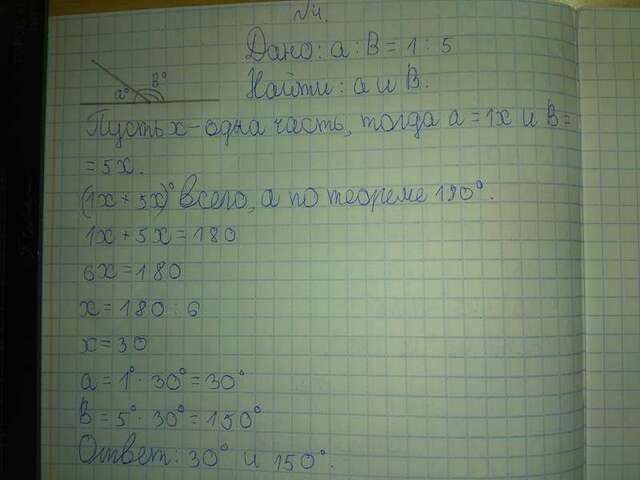 №4.
Дано: a : B = 1 : 5
a° B°
Найти: a и B.
Пусть x - одна часть, тогда a = 1x и B =
= 5x.
(1x + 5x)° всего, а по теореме 190°.
1x + 5x = 180
6x = 180
x = 180 : 6
x = 30
a = 1° · 30° = 30°
B = 5° · 30° = 150°
Ответ: 30° и 150°.